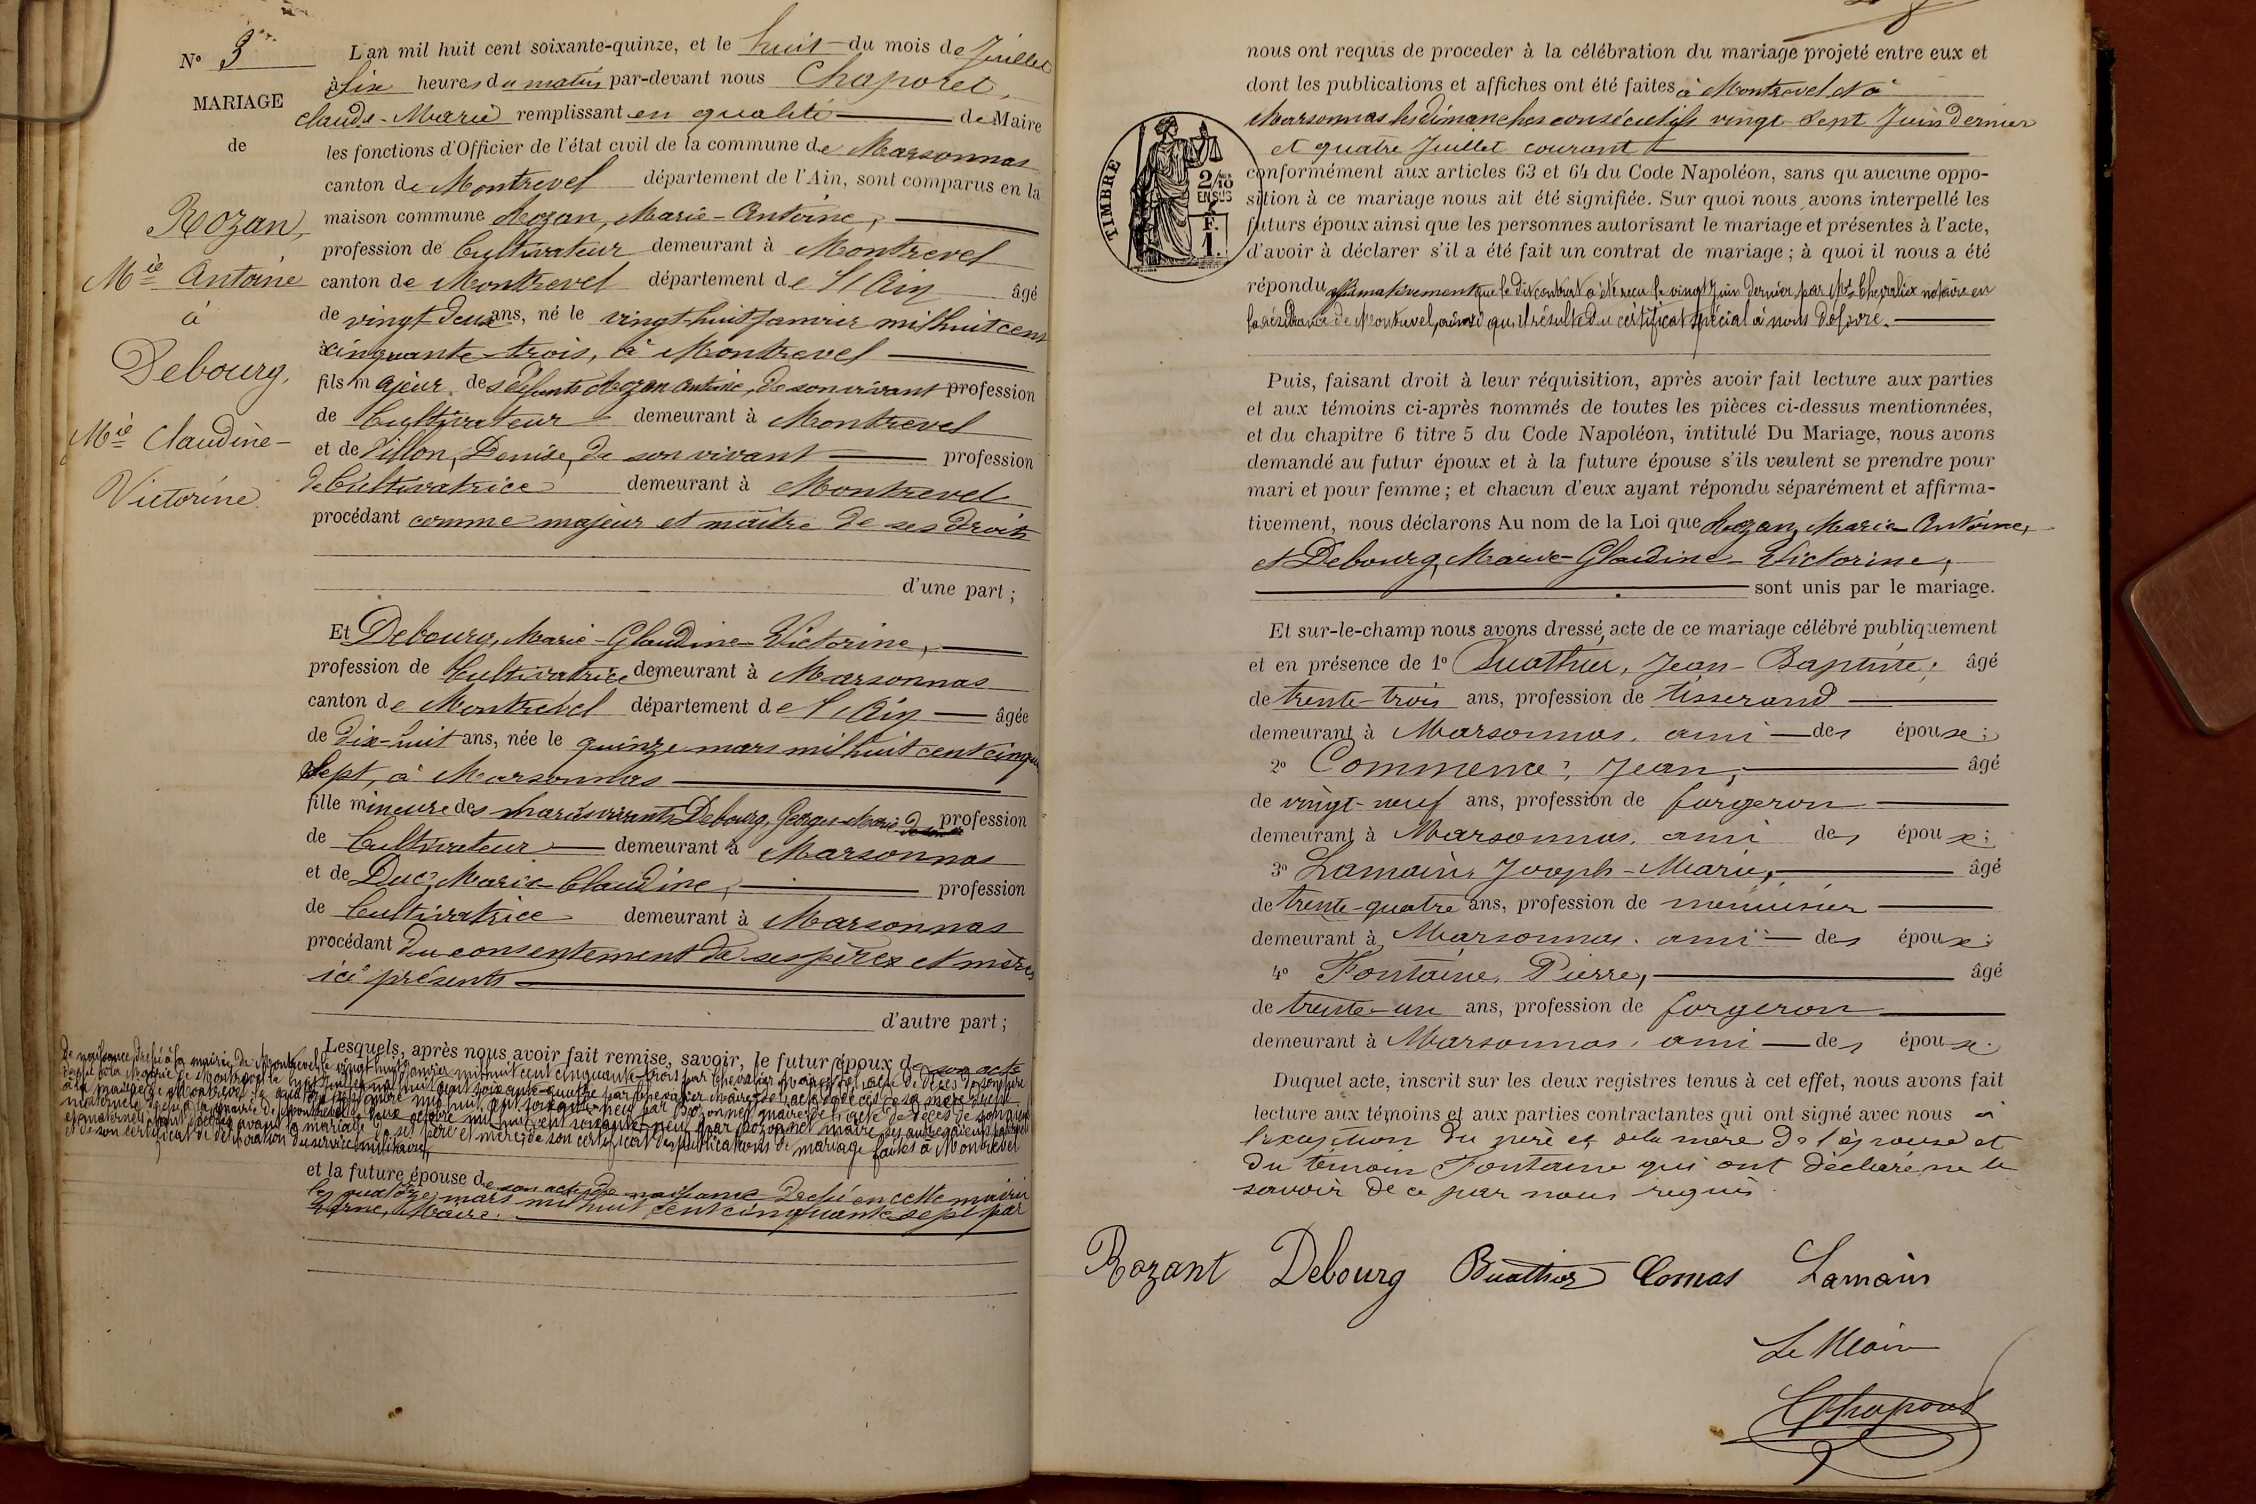 Nº 3
MARIAGE
de
Rozan,
Mie Antoine
à
Debourg,
Mie Claudine-
Victorine
L'an mil huit cent soixante-quinze, et le huit du mois de Juillet
à six heures du matin par-devant nous Chaponet,
Claude-Marie remplissant en qualité de Maire
les fonctions d'Officier de l'état civil de la commune de Marsonnas
canton de Montrevel département de l'Ain, sont comparus en la
maison commune Rozan, Marie-Antoine,
profession de Cultivateur demeurant à Montrevel
canton de Montrevel département de l'Ain âgé
de vingt-deux ans, né le vingt-huit janvier mil huit cent
cinquante-trois, à Montrevel
fils majeur des défunts Rozan Antoine, de son vivant profession
de Cultivateur demeurant à Montrevel
et de Villon, Denise, de son vivant profession
de Cultivatrice demeurant à Montrevel
procédant comme majeur et maître de ses droits
d'une part ;
Et Debourg, Marie-Glaudine-Victorine,
profession de Cultivatrice demeurant à Marsonnas
canton de Montrevel département de l'Ain âgée
de dix-huit ans, née le quinze mars mil huit cent cinqu
sept, à Marsonnas
fille mineure des mariés vivants Debourg, George-Marie profession
de Cultivateur demeurant à Marsonnas
et de Duc, Marie-Claudine, profession
de Cultivatrice demeurant à Marsonnas
procédant du consentement de ses pères et mères
ici présents
d'autre part ;
Lesquels, après nous avoir fait remise, savoir, le futur époux de son acte
de naissance, dressé à la mairie de Montrevel le vingt huit janvier mil huit cent cinquante-trois par Chevalier
et de son certificat de libération du service militaire,
et la future épouse de son acte de naissance dressé en cette mairie
le quatorze mars mil huit cent cinquante sept par
Maire.
nous ont requis de proceder à la célébration du mariage projeté entre eux et
dont les publications et affiches ont été faites à Montrevel et à
Marsonnas les dimanches consécutifs vingt-sept Juin dernier
et quatre Juillet courant
TIMBRE
2/10
EN SUS
F.
1.
conformément aux articles 63 et 64 du Code Napoléon, sans qu'aucune oppo-
sition à ce mariage nous ait été signifiée. Sur quoi nous avons interpellé les
futurs époux ainsi que les personnes autorisant le mariage et présentes à l'acte,
d'avoir à déclarer s'il a été fait un contrat de mariage ; à quoi il nous a été
répondu affirmativement que le dit contrat a été reçu le vingt Juin dernier par Me Chevalier notaire en
la résidence de Montrevel, ainsi qu'il résulte du certificat spécial à nous délivré.
Puis, faisant droit à leur réquisition, après avoir fait lecture aux parties
et aux témoins ci-après nommés de toutes les pièces ci-dessus mentionnées,
et du chapitre 6 titre 5 du Code Napoléon, intitulé Du Mariage, nous avons
demandé au futur époux et à la future épouse s'ils veulent se prendre pour
mari et pour femme ; et chacun d'eux ayant répondu séparément et affirma-
tivement, nous déclarons Au nom de la Loi que Rozan, Marie-Antoine,
et Debourg, Marie-Glaudine-Victorine,
sont unis par le mariage.
Et sur-le-champ nous avons dressé acte de ce mariage célébré publiquement
et en présence de 1º Buathier, Jean-Baptiste, âgé
de trente-trois ans, profession de tisserand
demeurant à Marsonnas, ami des époux;
2º Jean, âgé
de vingt-neuf ans, profession de forgeron
demeurant à Marsonnas, ami des époux;
3º Lamain, Joseph-Marie, âgé
de trente-quatre ans, profession de menuisier
demeurant à Marsonnas, ami des époux;
4º Fontaine, Pierre, âgé
de trente-un ans, profession de forgeron
demeurant à Marsonnas, ami des époux.
Duquel acte, inscrit sur les deux registres tenus à cet effet, nous avons fait
lecture aux témoins et aux parties contractantes qui ont signé avec nous à
l'exception du père et de la mère de l'épouse et
du témoin Fontaine qui ont déclaré ne le
savoir de ce par nous requis.
Rozant Debourg Buathier Comas Lamain
Le Maire
Chaponet